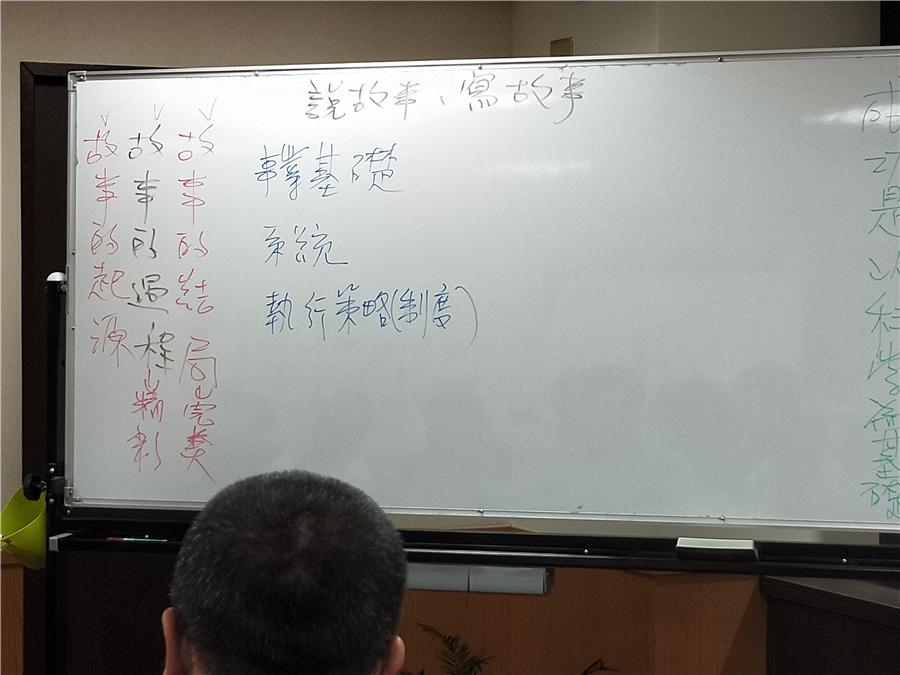 說故事、寫故事
故事的起源
故事的過程
精彩
故事的結局
完美
事業基礎
系統
執行策略(制度)
成功是以科學為基礎